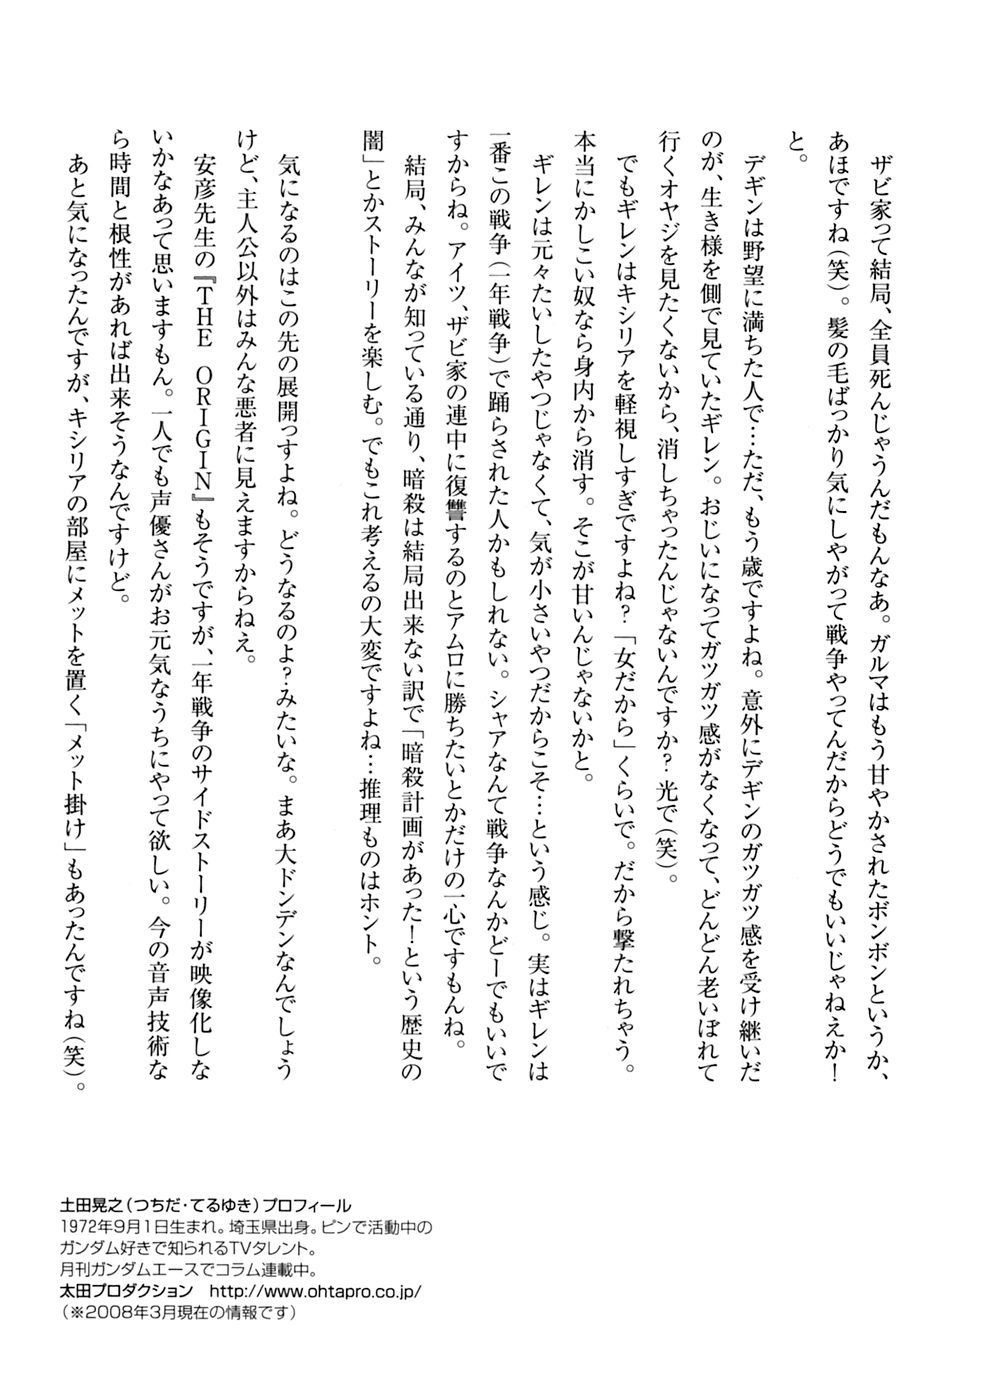 ザビ家って結局、全員死んじゃうんだもんなあ。ガルマはもう甘やかされたボンボンというか、
あほですね(笑)。髪の毛ばっかり気にしやがって戦争やってんだからどうでもいいじゃねえか！
と。
デギンは野望に満ちた人で…ただ、もう歳ですよね。意外にデギンのガツガツ感を受け継いだ
のが、生き様を側で見ていたギレン。おじいになってガツガツ感がなくなって、どんどん老いぼれて
行くオヤジを見たくないから、消しちゃったんじゃないんですか？光で(笑)。
でもギレンはキシリアを軽視しすぎですよね？「女だから」くらいで。だから撃たれちゃう。
本当にかしこい奴なら身内から消す。そこが甘いんじゃないかと。
ギレンは元々たいしたやつじゃなくて、気が小さいやつだからこそ…という感じ。実はギレンは
一番この戦争(一年戦争)で踊らされた人かもしれない。シャアなんて戦争なんかどーでもいいで
すからね。アイツ、ザビ家の連中に復讐するのとアムロに勝ちたいとかだけの一心ですもんね。
結局、みんなが知っている通り、暗殺は結局出来ない訳で「暗殺計画があった！という歴史の
闇」とかストーリーを楽しむ。でもこれ考えるの大変ですよね…推理ものはホント。
気になるのはこの先の展開っすよね。どうなるのよ？みたいな。まあ大ドンデンなんでしょう
けど、主人公以外はみんな悪者に見えますからねえ。
安彦先生の『THE ORIGIN』もそうですが、一年戦争のサイドストーリーが映像化しな
いかなあって思いますもん。一人でも声優さんがお元気なうちにやって欲しい。今の音声技術な
ら時間と根性があれば出来そうなんですけど。
あと気になったんですが、キシリアの部屋にメットを置く「メット掛け」もあったんですね(笑)。
土田晃之(つちだ・てるゆき)プロフィール
1972年9月1日生まれ。埼玉県出身。ピンで活動中の
ガンダム好きで知られるTVタレント。
月刊ガンダムエースでコラム連載中。
太田プロダクション http://www.ohtapro.co.jp/
(※2008年3月現在の情報です)